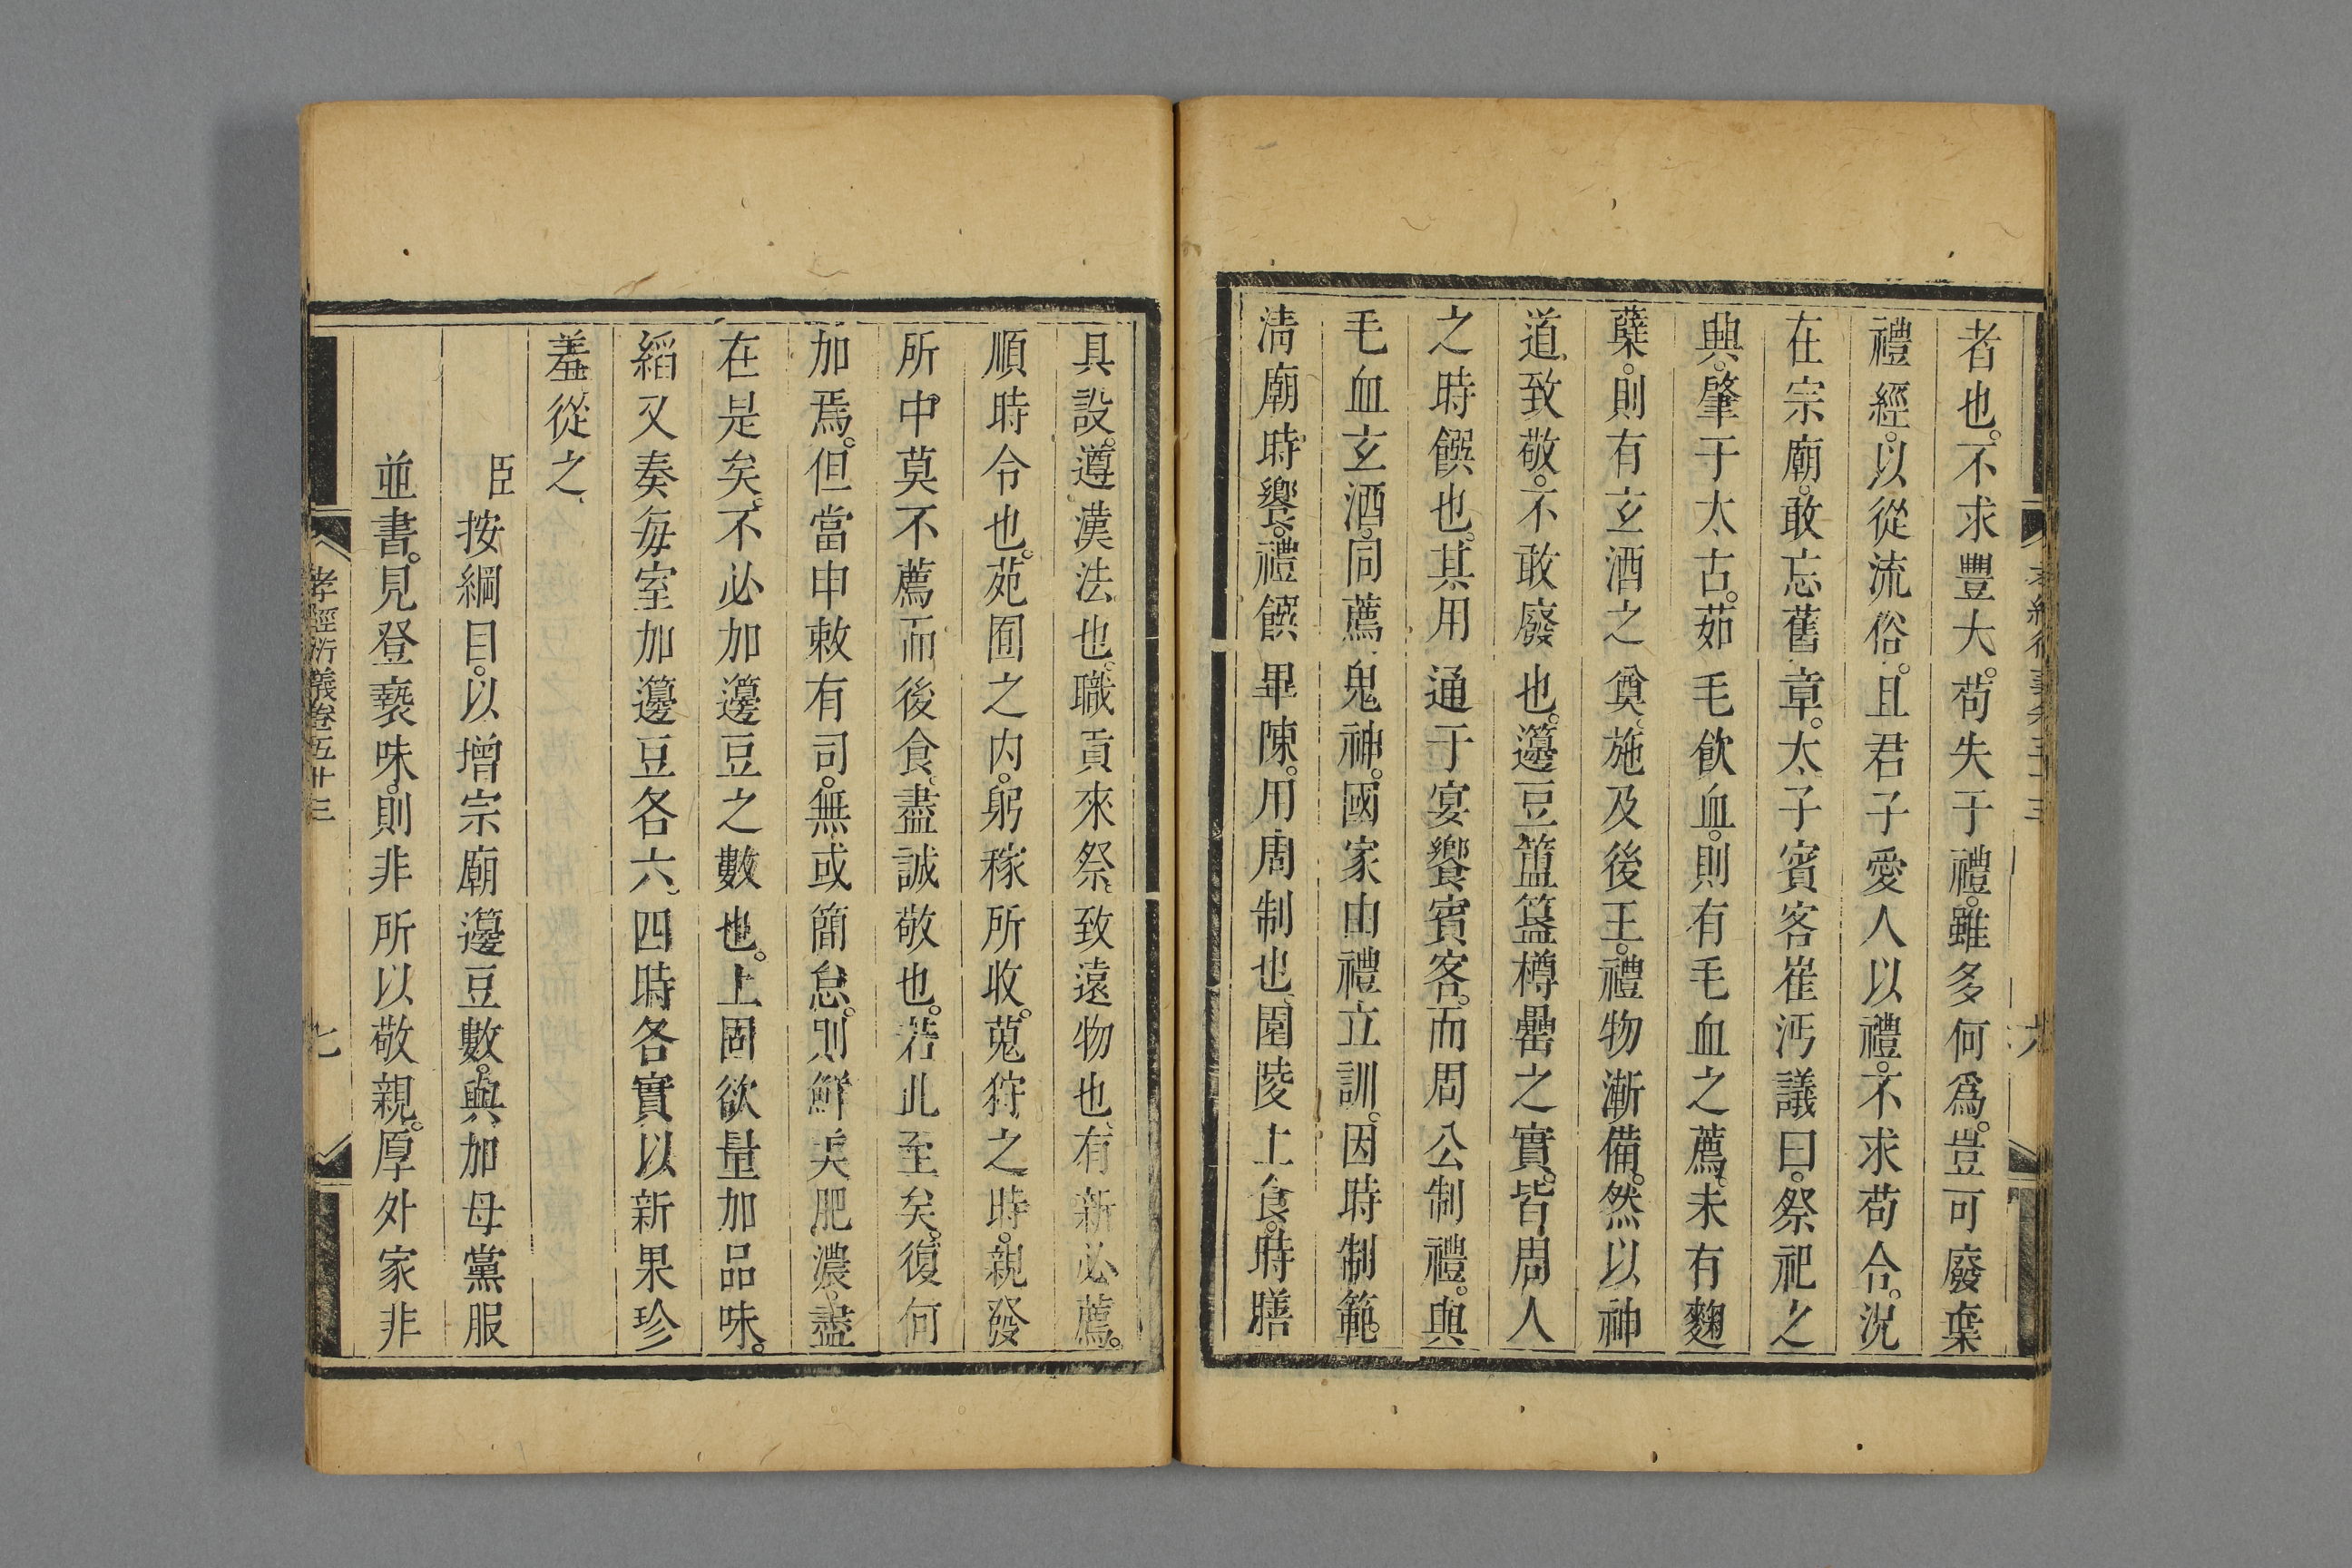 者也。不求豐大。苟失于禮。雖多何爲。豈可廢棄
禮經。以從流俗。且君子愛人以禮。不求苟合。況
在宗廟。敢忘舊章。太子賓客崔沔議曰。祭祀之
興。肇于太古。茹毛飲血。則有毛血之薦。未有麴
糵。則有玄酒之奠。施及後王。禮物漸備。然以神
道致敬。不敢廢也。籩豆簠簋樽罍之實。皆周人
之時饌也。其用通于宴饗賓客。而周公制禮。與
毛血玄酒。同薦鬼神。國家由禮立訓。因時制範。
清廟時饗。禮饌畢陳。用周制也。園陵上食。時膳
具設。遵漢法也。職貢來祭。致遠物也。有新必薦。
順時令也。苑囿之内。躬稼所收。蒐狩之時。親發
所中。莫不薦而後食。盡誠敬也。若此至矣。復何
加焉。但當申敕有司。無或簡怠。則鮮美肥濃。盡
在是矣。不必加籩豆之數也。上固欲量加品味。
縚又奏每室加籩豆各六。四時各實以新果珍
羞從之。
臣按綱目。以增宗廟籩豆數。與加母黨服
並書。見登褻味。則非所以敬親。厚外家非
孝經衍義卷五十三
七
六